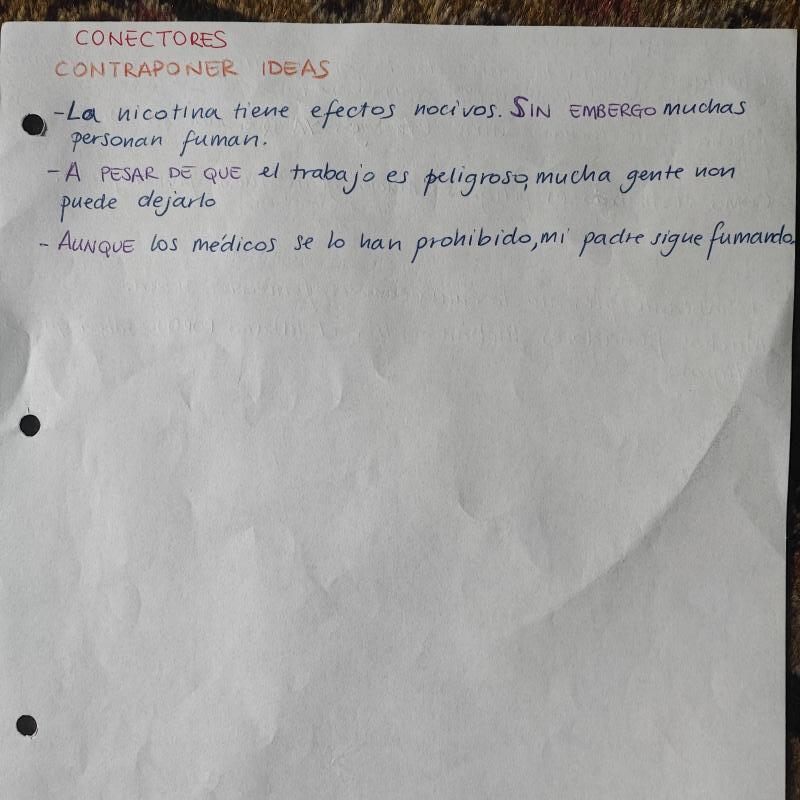 CONECTORES
CONTRAPONER IDEAS
-La nicotina tiene efectos nocivos. SIN EMBERGO muchas
personan fuman.
-A PESAR DE QUE el trabajo es peligroso, mucha gente non
puede dejarlo
- AUNQUE los médicos se lo han prohibido, mi padre sigue fumando.